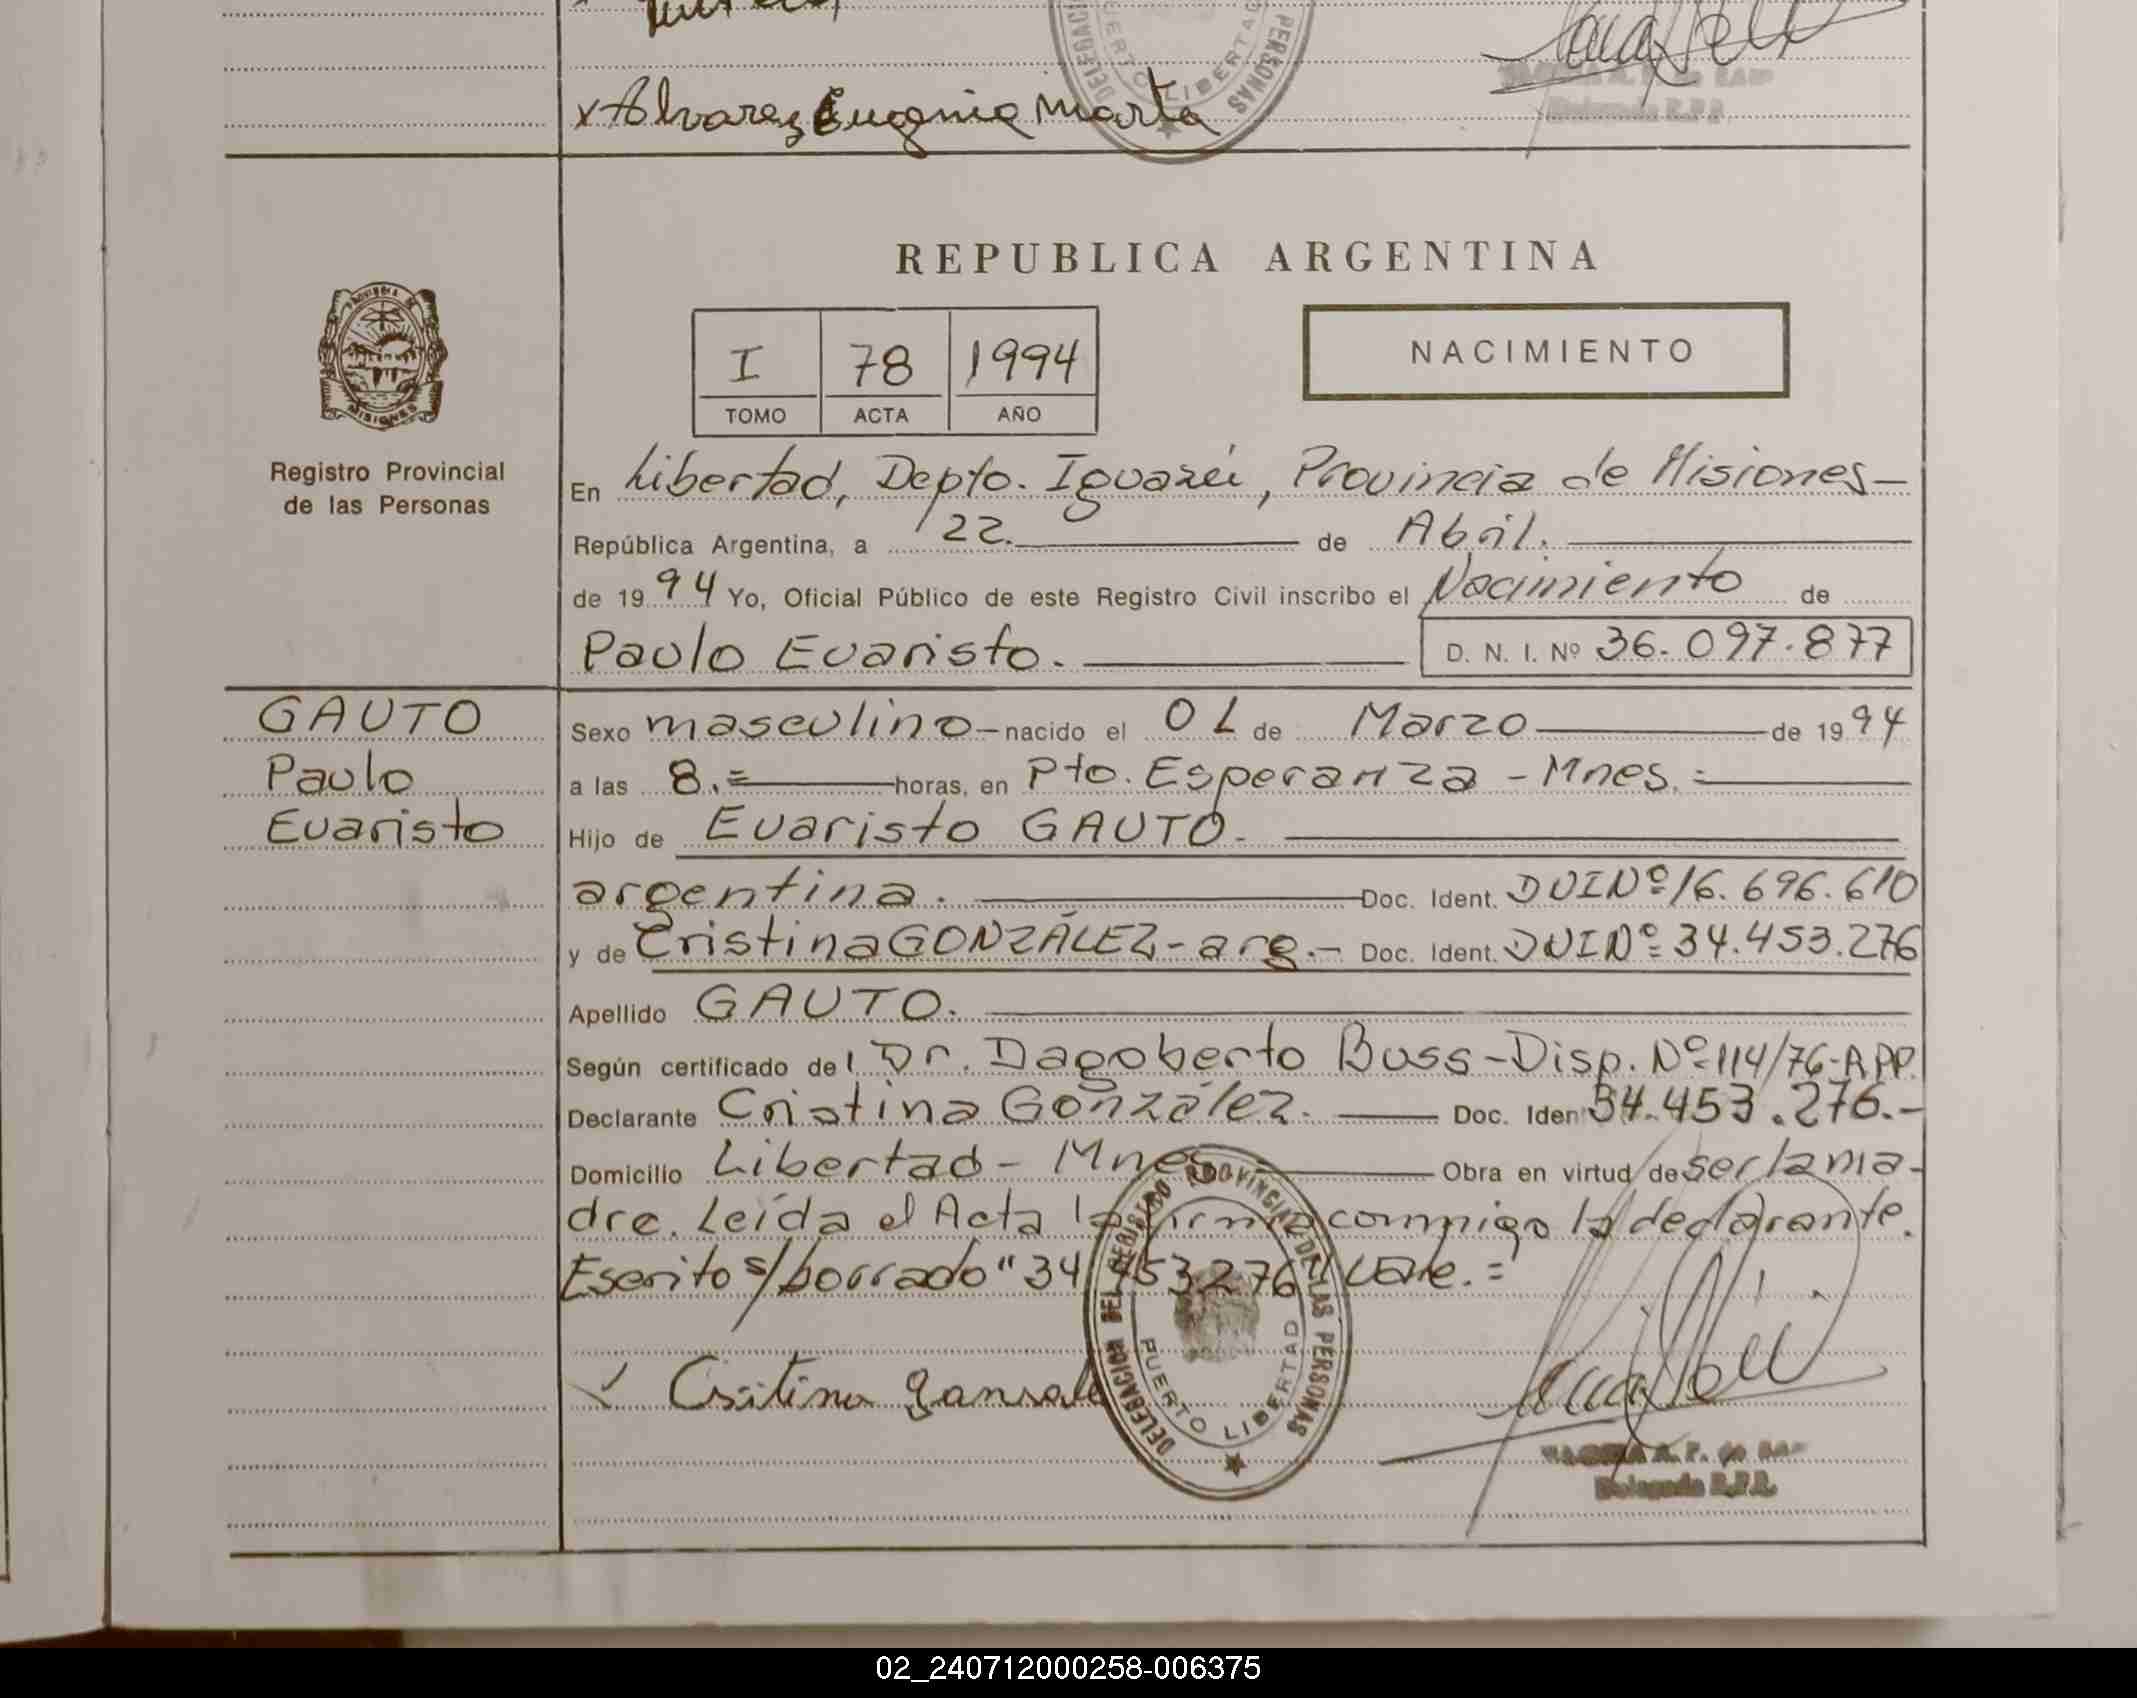 DELEGACI
PERSONAS
PUERTO LIBERTAD
x Alvarez Eugenia Marta
Delegada R.P.P.
REPUBLICA ARGENTINA
PROVINCIA DE
MISIONES
I 78 1994
TOMO ACTA AÑO
NACIMIENTO
Registro Provincial
de las Personas
En Libertad, Depto. Iguazú, Provincia de Misiones-
República Argentina, a 22. de Abril.
de 1994 Yo, Oficial Público de este Registro Civil inscribo el Nacimiento de
Paulo Evaristo. D. N. I. Nº 36.097.877
GAUTO
Paulo
Evaristo
Sexo masculino - nacido el 01 de Marzo de 1994
a las 8.= horas, en Pto. Esperanza - Mnes.=
Hijo de Evaristo GAUTO.
argentina. Doc. Ident. DUI Nº 16.696.610
y de Cristina GONZÁLEZ - arg.- Doc. Ident. DUI Nº 34.453.276
Apellido GAUTO.
Según certificado de l Dr. Dagoberto Buss - Disp. Nº 114/76-APP.
Declarante Cristina González. Doc. Iden 34.453.276.-
Domicilio Libertad - Mnes Obra en virtud de ser la ma-
dre. Leída el Acta la firma conmigo la declarante.
Escrito s/borrado "34.453.276" Vale.=
Cristina
DELEGACION DEL REGISTRO PROVINCIAL DE LAS PERSONAS
PUERTO LIBERTAD
Delegada R.P.P.
02_240712000258-006375